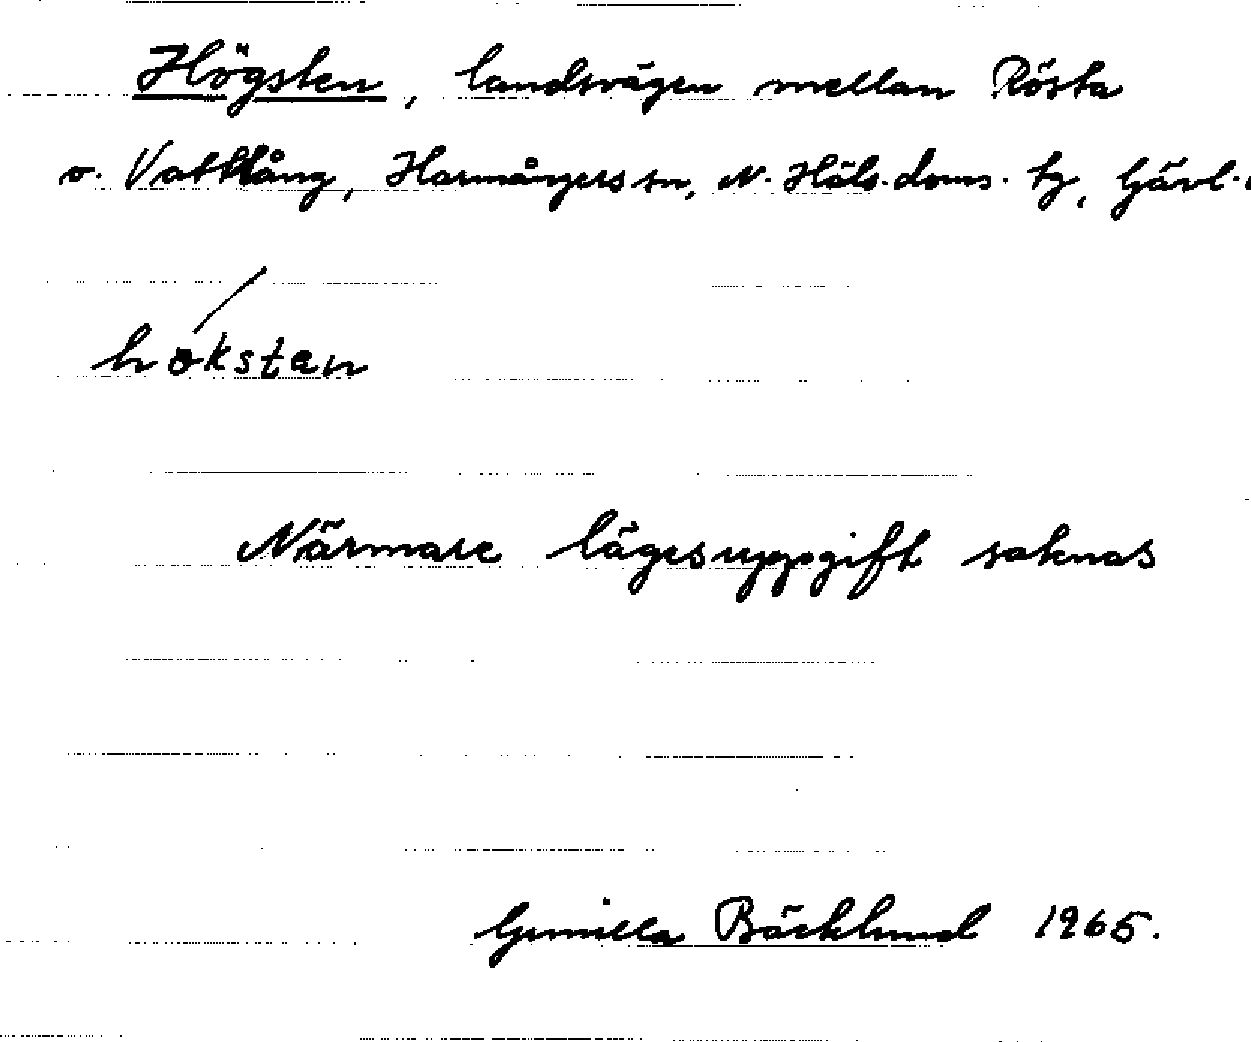 Högsten, landsvägen mellan Rösta
o. Vattlång, Harmångers sn, N. Häls. doms. tg, Gävl.
höksten
Närmare lägesuppgift saknas
Gunilla Bäcklund 1965.